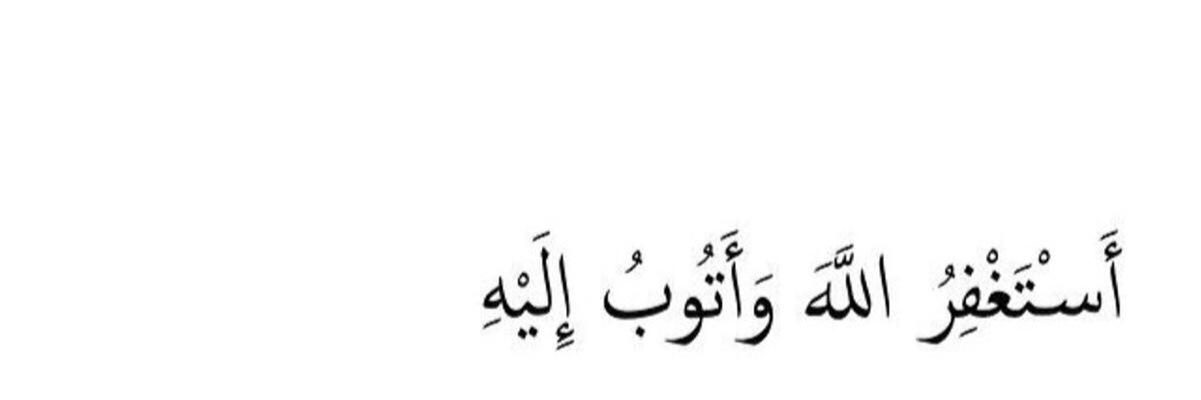 أَسْتَغْفِرُ اللَّهَ وَأَتُوبُ إِلَيْهِ